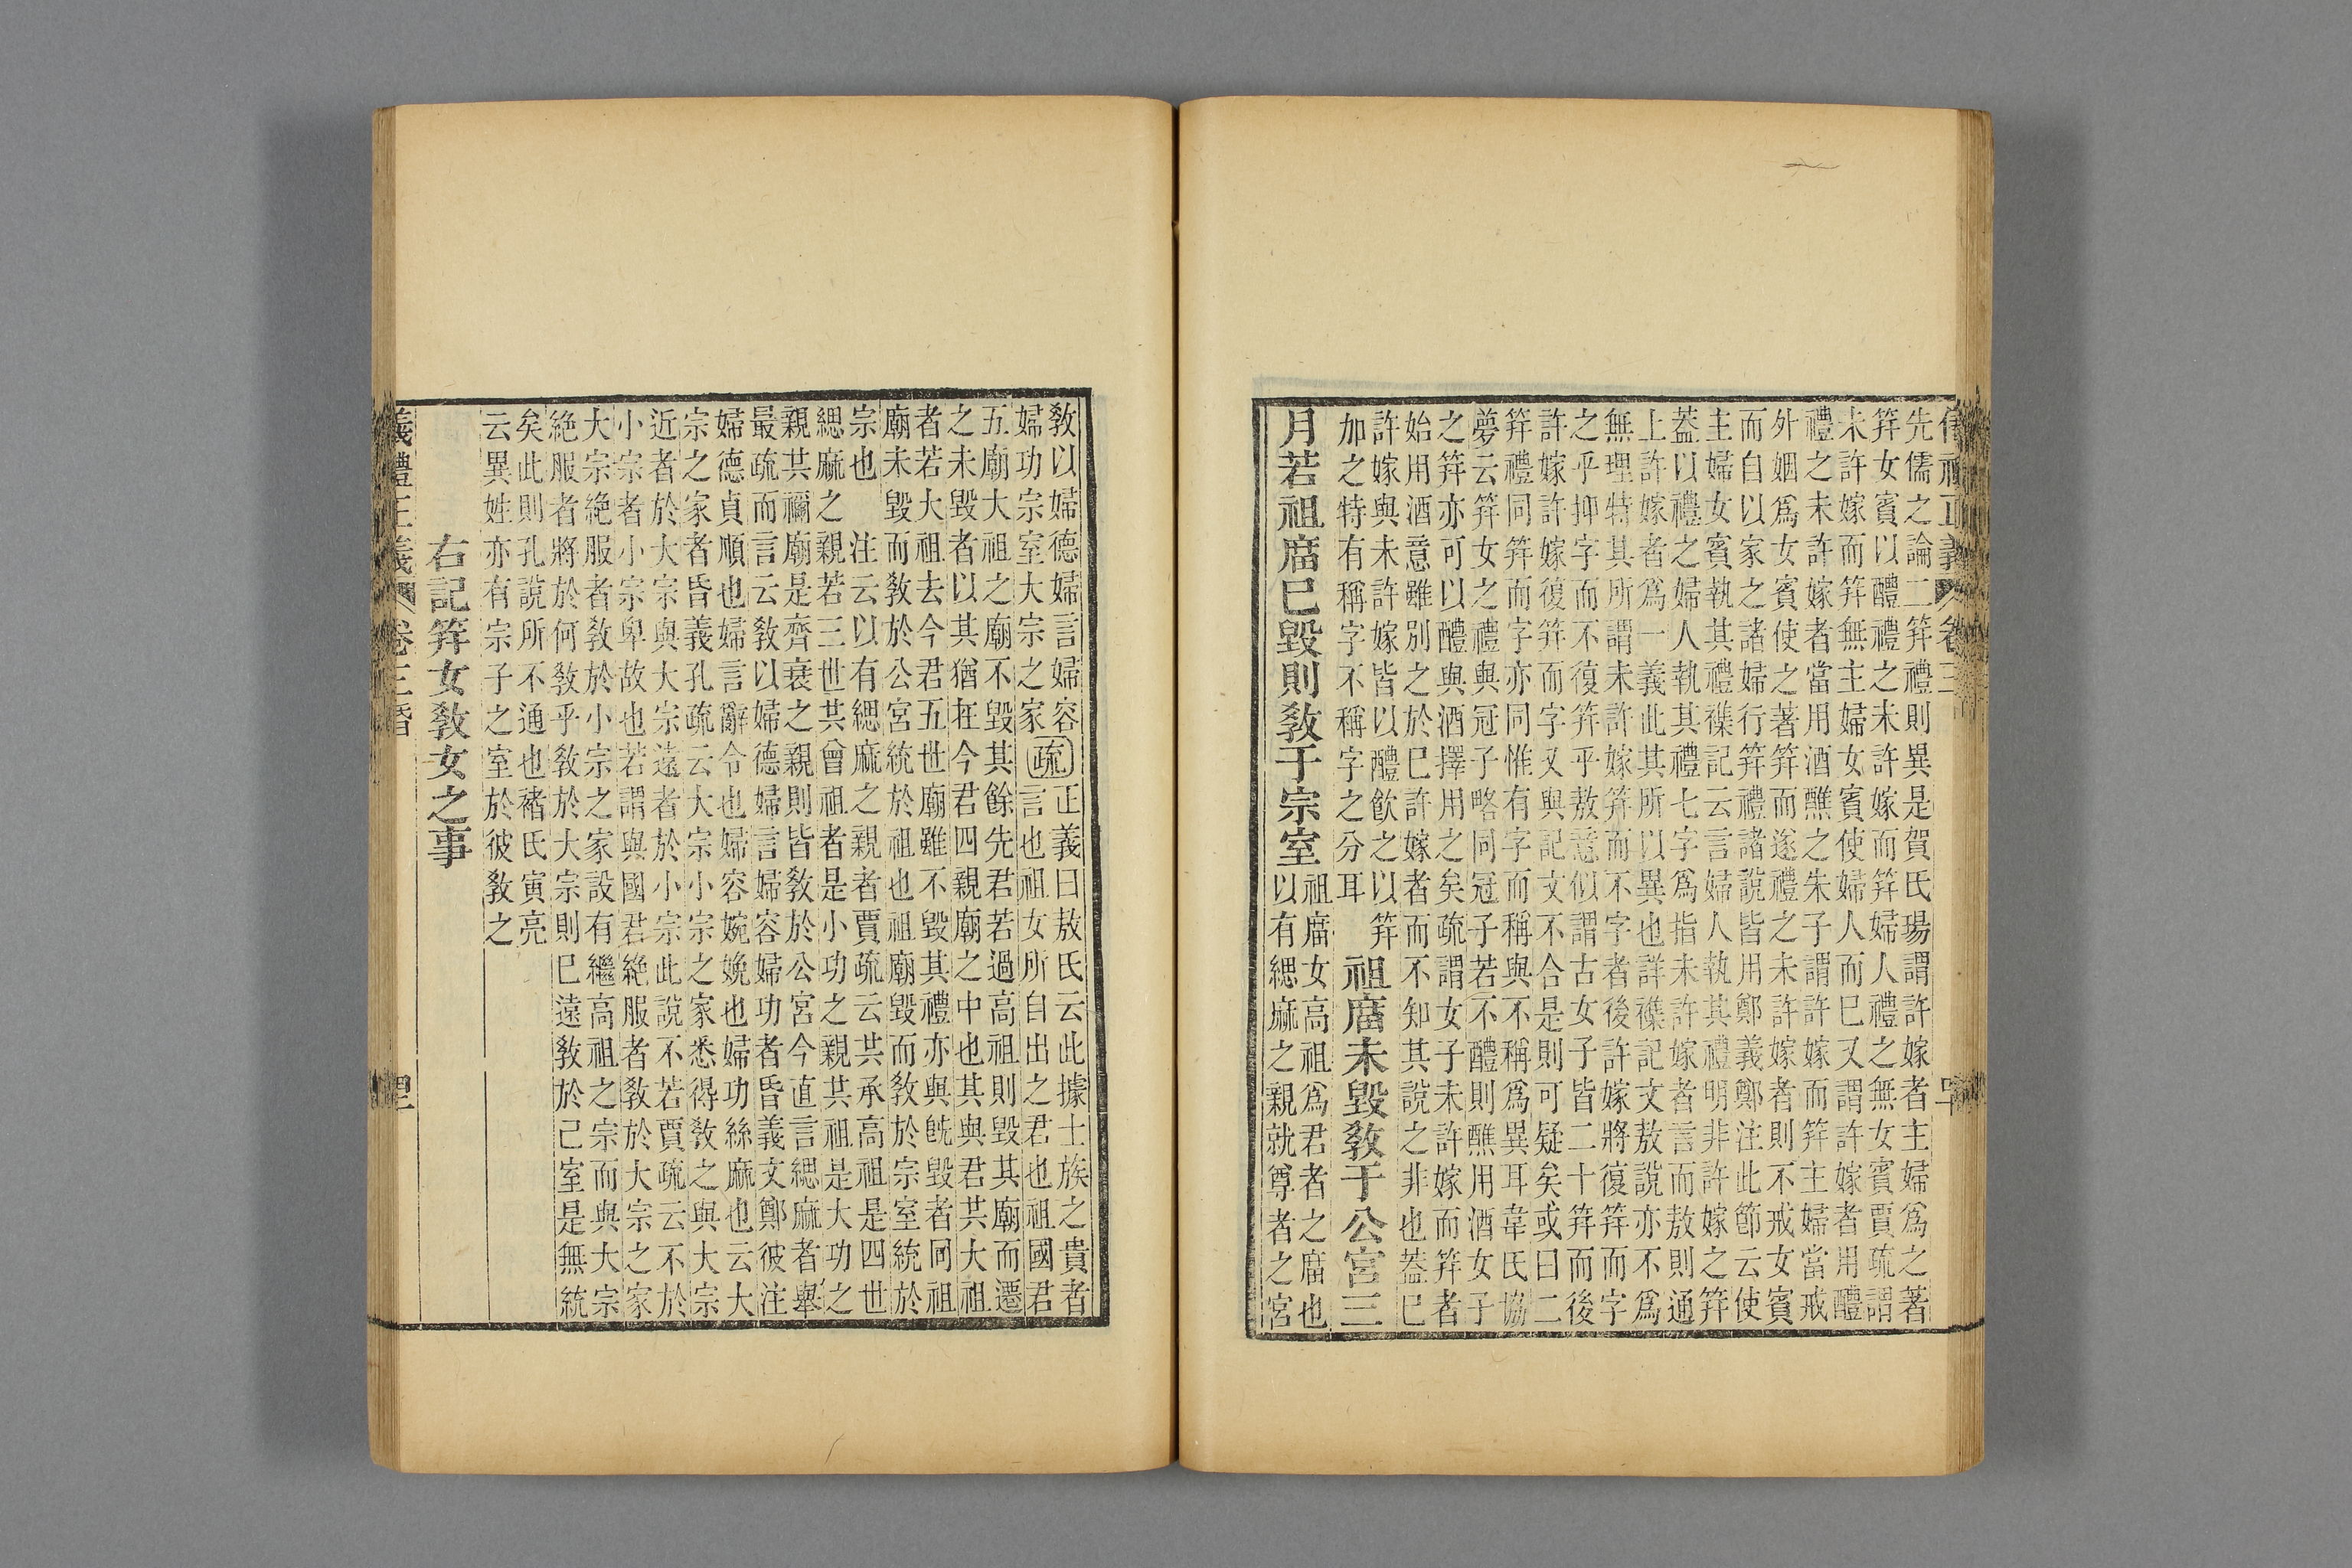 先儒之論二筓禮則異是賀氏瑒謂許嫁者主婦爲之著
筓女賓以醴禮之未許嫁而筓婦人禮之無女賓賈疏謂
未許嫁而筓無主婦女賓使婦人而已又謂許嫁者用醴
禮之未許嫁者當用酒醮之朱子謂許嫁而筓主婦當戒
外姻爲女賓使之著筓而遂禮之未許嫁者則不戒女賓
而自以家之諸婦行筓禮諸說皆用鄭義鄭注此節云使
主婦女賓執其禮襍記云言婦人執其禮明非許嫁之筓
蓋以禮之婦人執其禮七字爲指未許嫁者言而敖則通
上許嫁者爲一義此其所以異也詳襍記文敖說亦不爲
無理特其所謂未許嫁筓而不字者後許嫁將復筓而字
之乎抑字而不復筓乎敖意似謂古女子皆二十筓而後
許嫁許嫁復筓而字又與記文不合是則可疑矣或曰二
筓禮同筓而字亦同惟有字而稱與不稱爲異耳韋氏協
夢云筓女之禮與冠子略同冠子若不醴則醮用酒女子
之筓亦可以醴與酒擇用之矣疏謂女子未許嫁而筓者
始用酒意雖別之於已許嫁者而不知其說之非也蓋已
許嫁與未許嫁皆以醴飮之以筓
加之特有稱字不稱字之分耳
祖廟未毀敎于公宮三
月若祖廟已毀則敎于宗室
祖廟女高祖爲君者之廟也
以有緦麻之親就尊者之宮
敎以婦德婦言婦容
婦功宗室大宗之家
疏
正義曰敖氏云此據士族之貴者
言也祖女所自出之君也祖國君
五廟大祖之廟不毀其餘先君若過高祖則毀其廟而遷
之未毀者以其猶在今君四親廟之中也其與君共大祖
者若大祖去今君五世廟雖不毀其禮亦與旣毀者同祖
廟未毀而敎於公宮統於祖也祖廟毀而敎於宗室統於
宗也　注云以有緦麻之親者賈疏云共承高祖是四世
緦麻之親若三世共曾祖者是小功之親共祖是大功之
親其禰廟是齊衰之親則皆敎於公宮今直言緦麻者舉
最疏而言云敎以婦德婦言婦容婦功者昏義文鄭彼注
婦德貞順也婦言辭令也婦容婉娩也婦功絲麻也云大
宗之家者昏義孔疏云大宗小宗之家悉得敎之與大宗
近者於大宗與大宗遠者於小宗此說不若賈疏云不於
小宗者小宗卑故也若謂與國君絕服者敎於大宗之家
大宗絕服者敎於小宗之家設有繼高祖之宗而與大宗
絕服者將於何敎乎敎於大宗則已遠敎於己室是無統
矣此則孔說所不通也褚氏寅亮
云異姓亦有宗子之室於彼敎之
右記筓女敎女之事